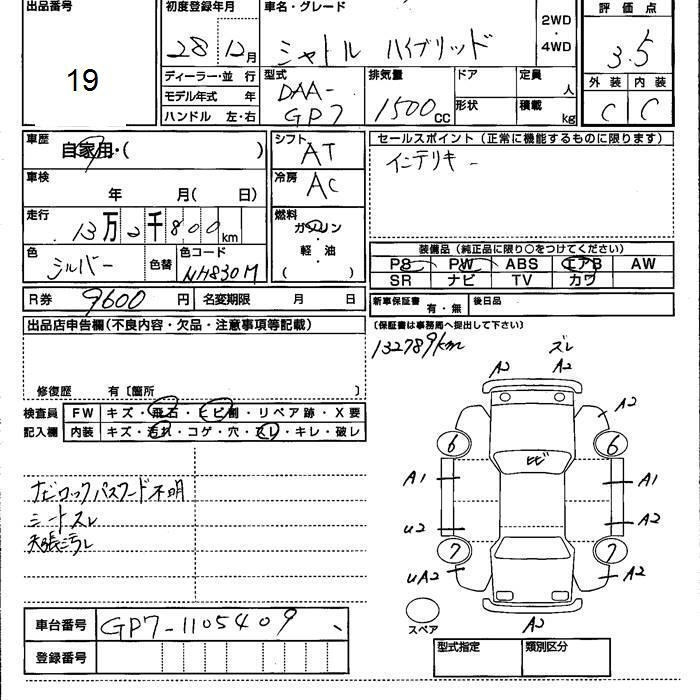 出品番号
19
初度登録年月
28 12月
車名・グレード
シャトル ハイブリッド
2WD
4WD
評価点
3.5
外装 内装
C C
ディーラー・並 行
モデル年式 年
ハンドル 左・右
型式
DAA-
GP7
排気量
1500cc
ドア
形状
定員
人
積載
kg
車歴
自家用・( )
車検
年 月( 日)
走行
13万2千800km
色
シルバー
色替
色コード
NH830M
シフト
AT
冷房
AC
燃料
ガソリン
軽・油
( )
セールスポイント (正常に機能するものに限ります)
インテリキー
装備品 (純正品に限り○をつけてください)
PS PW ABS エアB AW
SR ナビ TV カワ
R券 9600円
名変期限 月 日
新車保証書 有・無
後日品
(保証書は事務局へ提出して下さい)
出品店申告欄(不良内容・欠品・注意事項等記載)
修復歴 有〔箇所 〕
132789km
ズレ
A2 A2
検査員
記入欄
FW キズ・飛石・ヒビ割・リペア跡・X要
内装 キズ・汚れ・コゲ・穴・スレ・キレ・破レ
A2
6 6
ヒビ
A1 A1
U2 A2
7 7
UA2 A2
A2
スペア
ナビロックパスワード不明
シートスレ
天張汚レ
車台番号 GP7-1105409
登録番号
型式指定
類別区分